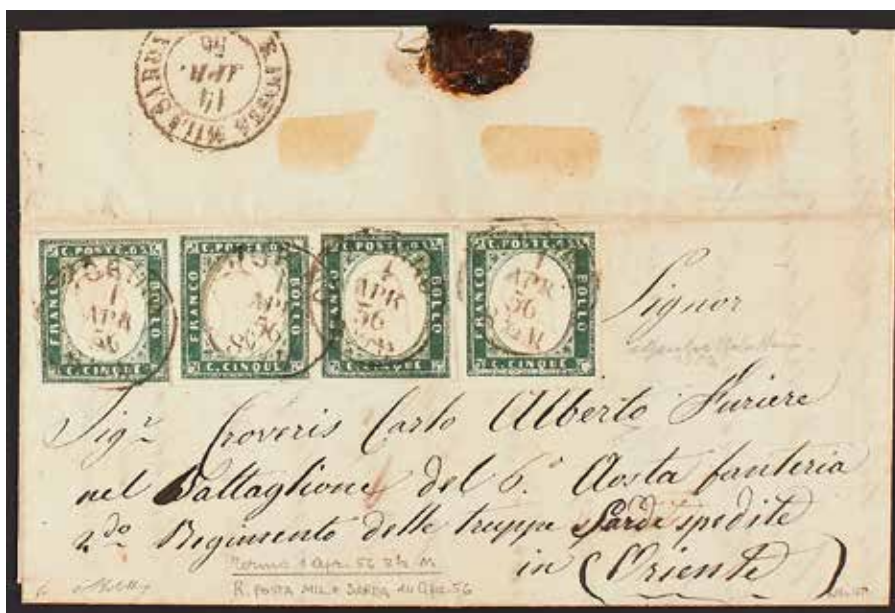 R. POSTA MILE SARDA
14
APR.
56
C. POSTE. 05
FRANCO
BOLLO
C. CINQUE
TORINO
1
APR
56
C. POSTE. 05
FRANCO
BOLLO
C. CINQUE
TORINO
1
APR
56
C. POSTE. 05
FRANCO
BOLLO
C. CINQUE
1
APR
56
C. POSTE. 05
FRANCO
BOLLO
C. CINQUE
1
APR
56
Signor
Sigr Croveris Carlo Alberto Furiere
nel Battaglione del 6.° Aosta fanteria
2do Regimento delle truppe Sarde spedite
in (Oriente)
Torino 1 Apr. 56
R. POSTA MIL.e SARDA 14 Apr. 56